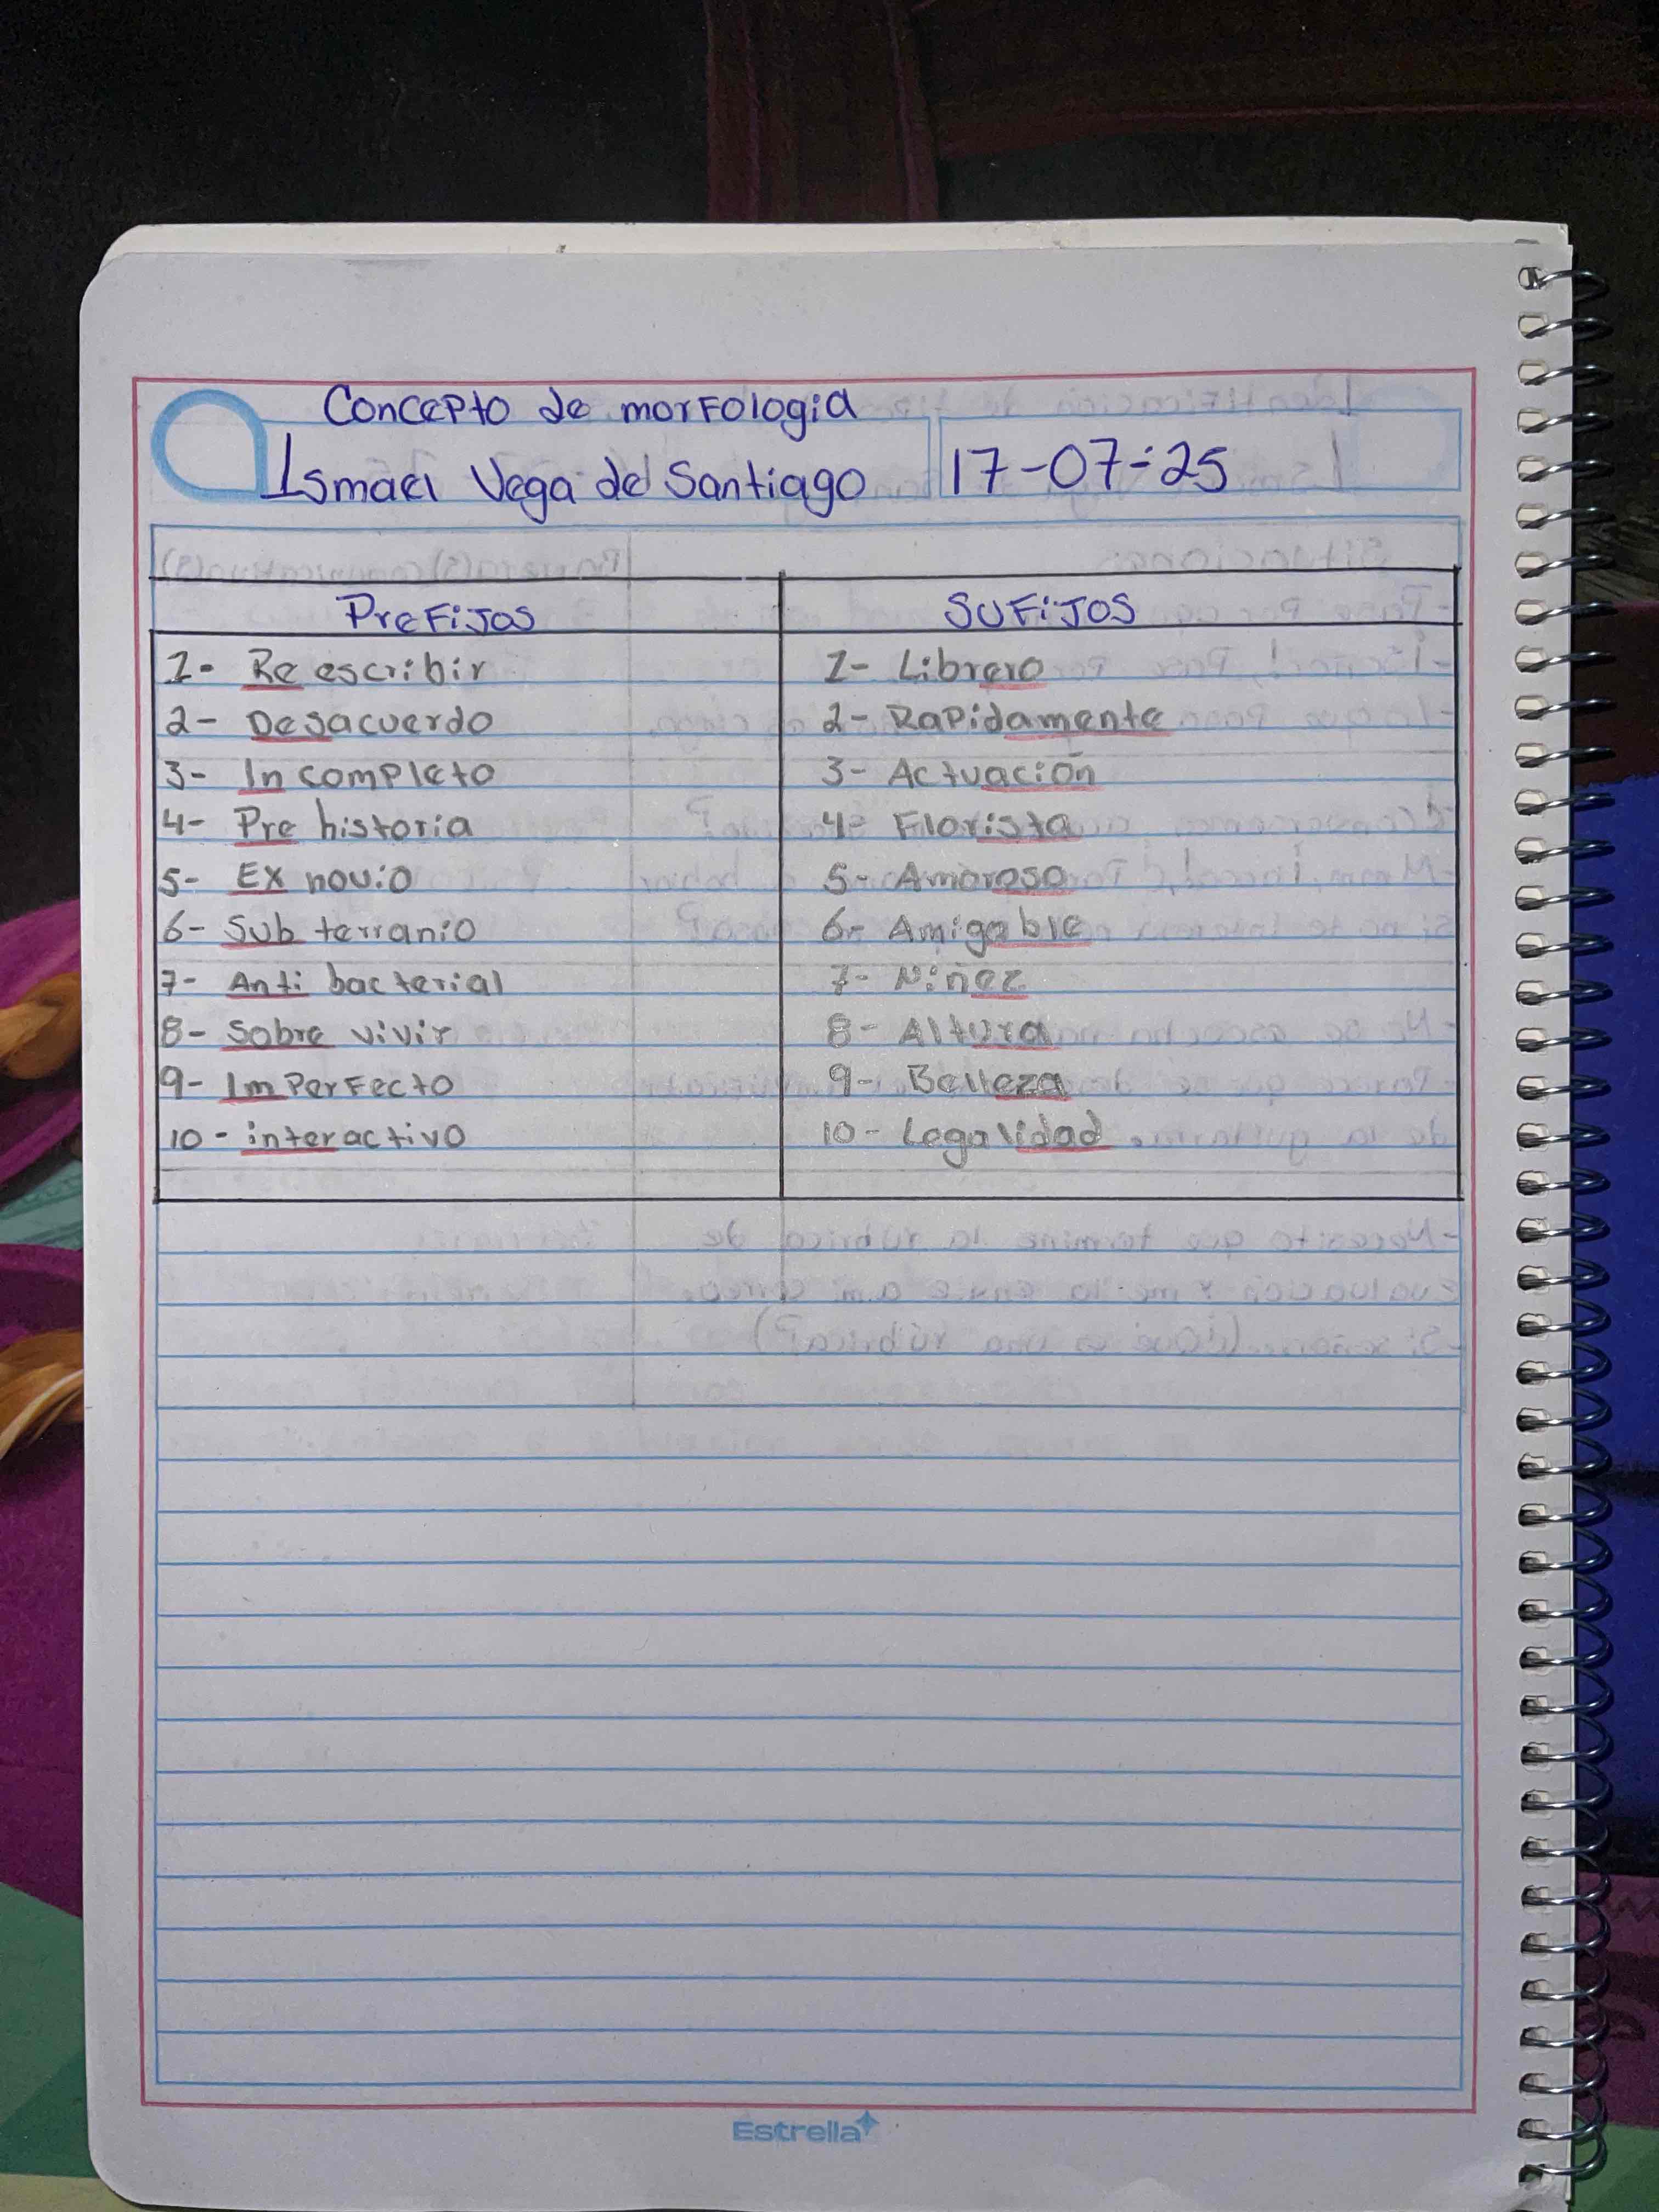 Concepto de morfologia
Ismael Vega de Santiago 17-07-25
Prefijos Sufijos
1- Re escribir 1- Librero
2- Desacuerdo 2- Rapidamente
3- In completo 3- Actuación
4- Pre historia 4- Florista
5- Ex novio 5- Amoroso
6- Sub terranio 6- Amigable
7- Anti bacterial 7- Niñez
8- Sobre vivir 8- Altura
9- Im perfecto 9- Belleza
10- interactivo 10- Legalidad
Estrella